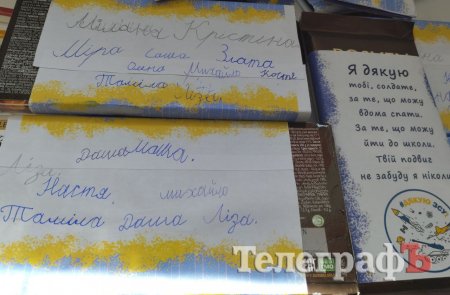 Міхаїл Крістіна
Міра Саша Злата
Михайло Костя
Таміла Ліза
Даша Маша.
Ліза
Настя. михайло
Таміла Даша Ліза.
Я дякую
тобі, солдате,
за те, що можу
вдома спати.
За те, що можу
йти до школи.
Твій подвиг
не забуду я ніколи
#ДЯКУЮ ЗСУ
ТелеграфЪ